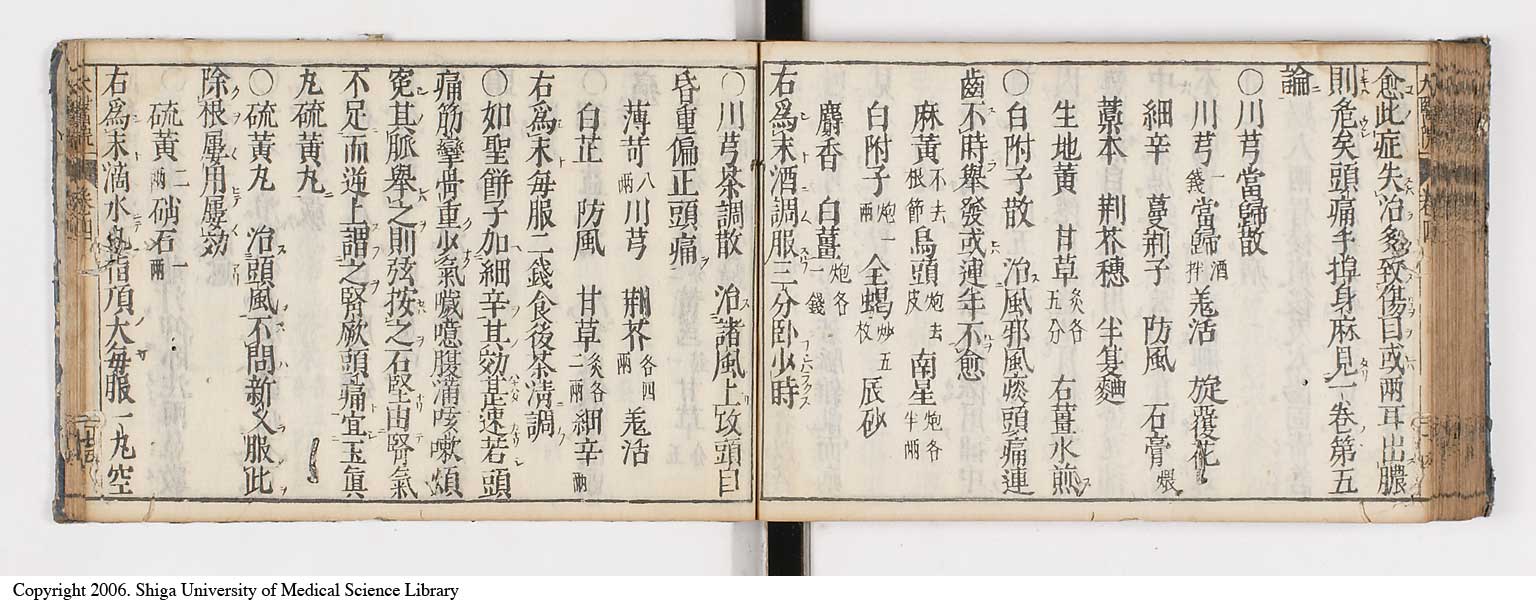 愈此症失治多致傷目或兩耳出膿
則危矣頭痛手掉身麻見一卷第五
論
〇川芎當歸散
川芎一錢當歸酒拌羌活 旋覆花
細辛 蔓荊子 防風 石膏煨
藁本 荆芥穗 半夏麯
生地黄 甘草炙各五分 右薑水煎
〇白附子散 治風邪風痰頭痛連
齒不時舉發或連年不愈
麻黄不去根節烏頭炮去皮南星炮各半兩
白附子炮一兩全蝎炒五枚 辰砂
麝香 白薑炮各一錢
右爲末酒調服三分卧少時
〇川芎茶調散 治諸風上攻頭目
昏重偏正頭痛
薄苛八兩川芎 荆芥各四兩 羌活
白芷 防風 甘草炙各二兩細辛一兩
右爲末每服二錢食後茶淸調
〇如聖餅子加細辛其効甚速若頭
痛筋攣骨重少氣噦噫腹滿咳嗽煩
寃其脈舉之則弦按之石堅由腎氣
不足而逆上謂之腎厥頭痛宜玉眞
丸硫黄丸
〇硫黄丸 治頭風不問新久服此
除根屢用屢効
硫黄二兩硝石一兩
右爲末滴水丸指頂大每服一丸空
Copyright 2006. Shiga University of Medical Science Library